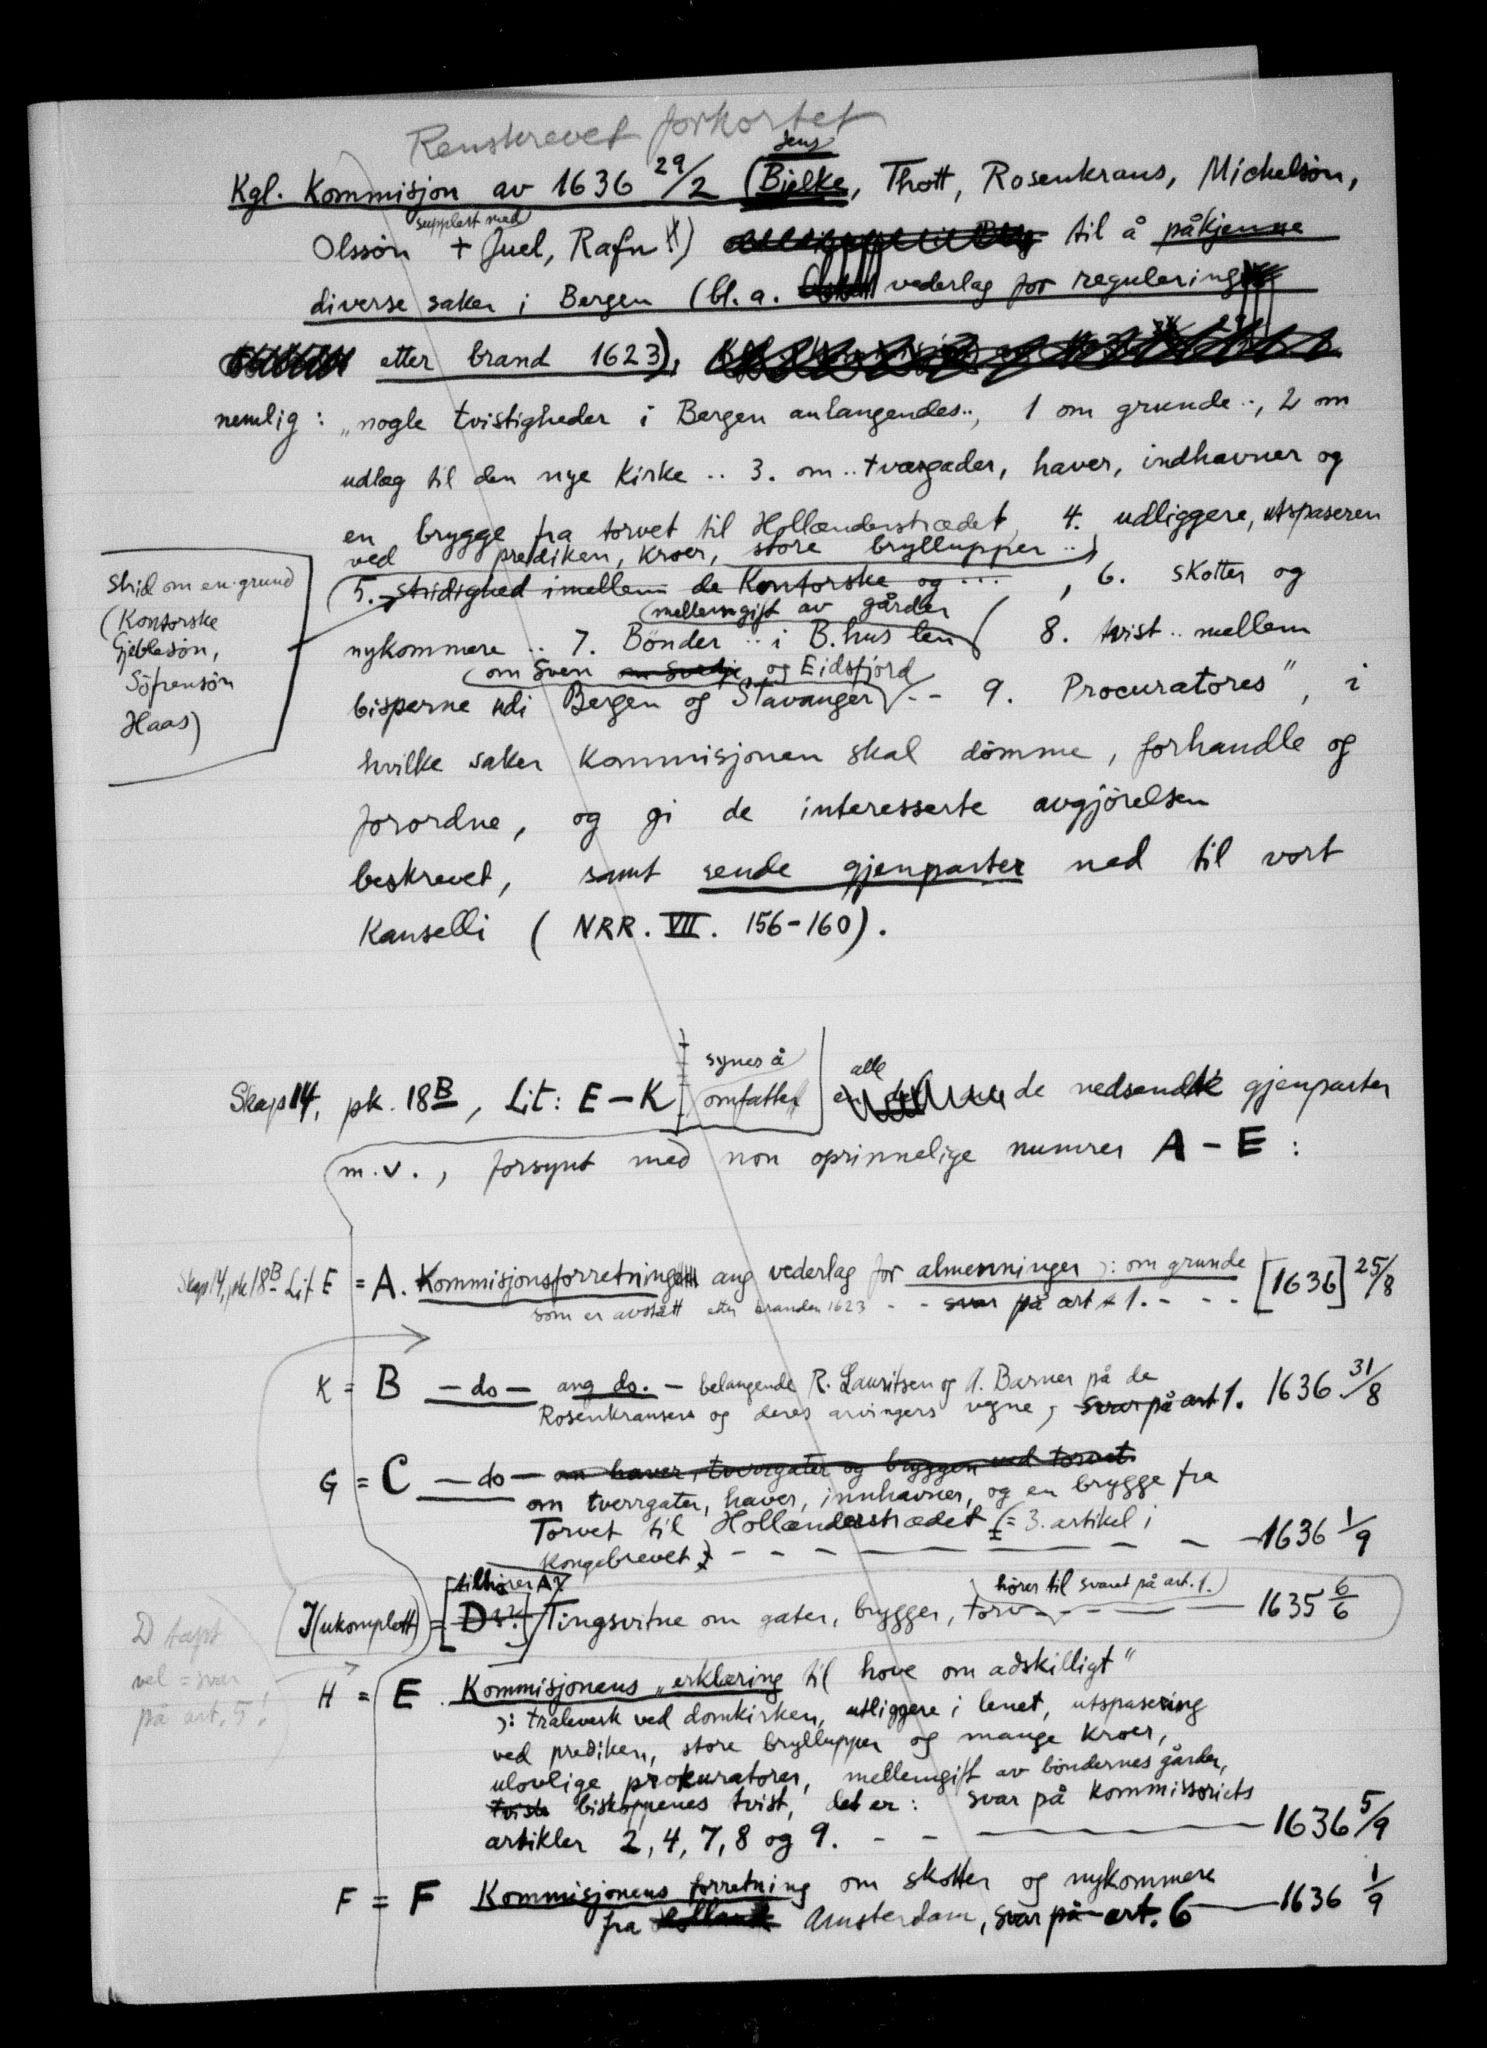 Renskrevet forkortet
Jens
Kgl. Kommisjon av 1636 29/2 (Bjelke, Thott, Rosenkrans, Michelsøn,
supplert med
Olssøn + Juel, Rafn) til å påkjenne
diverse saker i Bergen (bl. a. vederlag for regulering
etter brand 1623),
nemlig: „nogle tvistigheder i Bergen anlangendes.., 1 om grunde .., 2 om
udlæg til den nye Kirke .. 3. om .. tværgader, haver, indhavner og
en brygge fra torvet til Hollænderstrædet, 4. udliggere, utspaseren
ved prediken, kroer, store bryllupper ..
5. stridighed imellem de Kontorske og ... , 6. skotter og
mellemgift av gårder
nykommere .. 7. Bønder .. i B.hus len 8. tvist .. mellem
om Sven om Svedje og Eidsfjord
bisperne udi Bergen og Stavanger .. 9. Procuratores”, i
hvilke saker kommisjonen skal dømme, forhandle og
forordne, og gi de interesserte avgjørelsen
beskrevet, samt sende gjenparter ned til vort
Kanselli (NRR. VII. 156-160).
Strid om en grund
(Kontorske
Gjeblesøn,
Söfrensön
Haas)
Skap 14, pk. 18B, Lit: E-K synes å omfatte alle de nedsendte gjenparter
m.v., forsynt med non oprinnelige numrer A-E:
Skap 14, pk 18B Lit E = A. Kommisjonsforretning ang vederlag for almenninger ): om grunde [1636] 25/8
som er avstått etter branden 1623 - - svar på art 1. - - -
K = B — do — ang do. — belangende R. Lauritsen og A. Barner på de
Rosenkransers og deres arvingers vegne, svar på art 1. 1636 31/8
G = C — do — om haver, tverrgater og bryggen ved torvet
om tverrgater, haver, innhavner, og en brygge fra
Torvet til Hollænderstrædet (= 3. artikel i
Kongebrevet) - - - 1636 1/9
tilhører A?
hører til svaret på art. 1.
I (ukomplett) = [D ?] Tingsvitne om gater, brygger, torv - - - 1635 6/6
D tapt
vel = svar
på art. 5!
H = E. Kommisjonens „erklæring til hove om adskilligt”
): tralverk ved domkirken, utliggere i lenet, utspasering
ved prediken, store bryllupper og mange kroer,
ulovlige prokuratorer, mellemgift av bøndernes gårder,
tviste biskoppenes tvist, det er: svar på kommissoriets
artikler 2, 4, 7, 8 og 9. - - - 1636 5/9
F = F Kommisjonens forretning om skotter og nykommere
fra Holland Amsterdam, svar på art. 6 — 1636 1/9